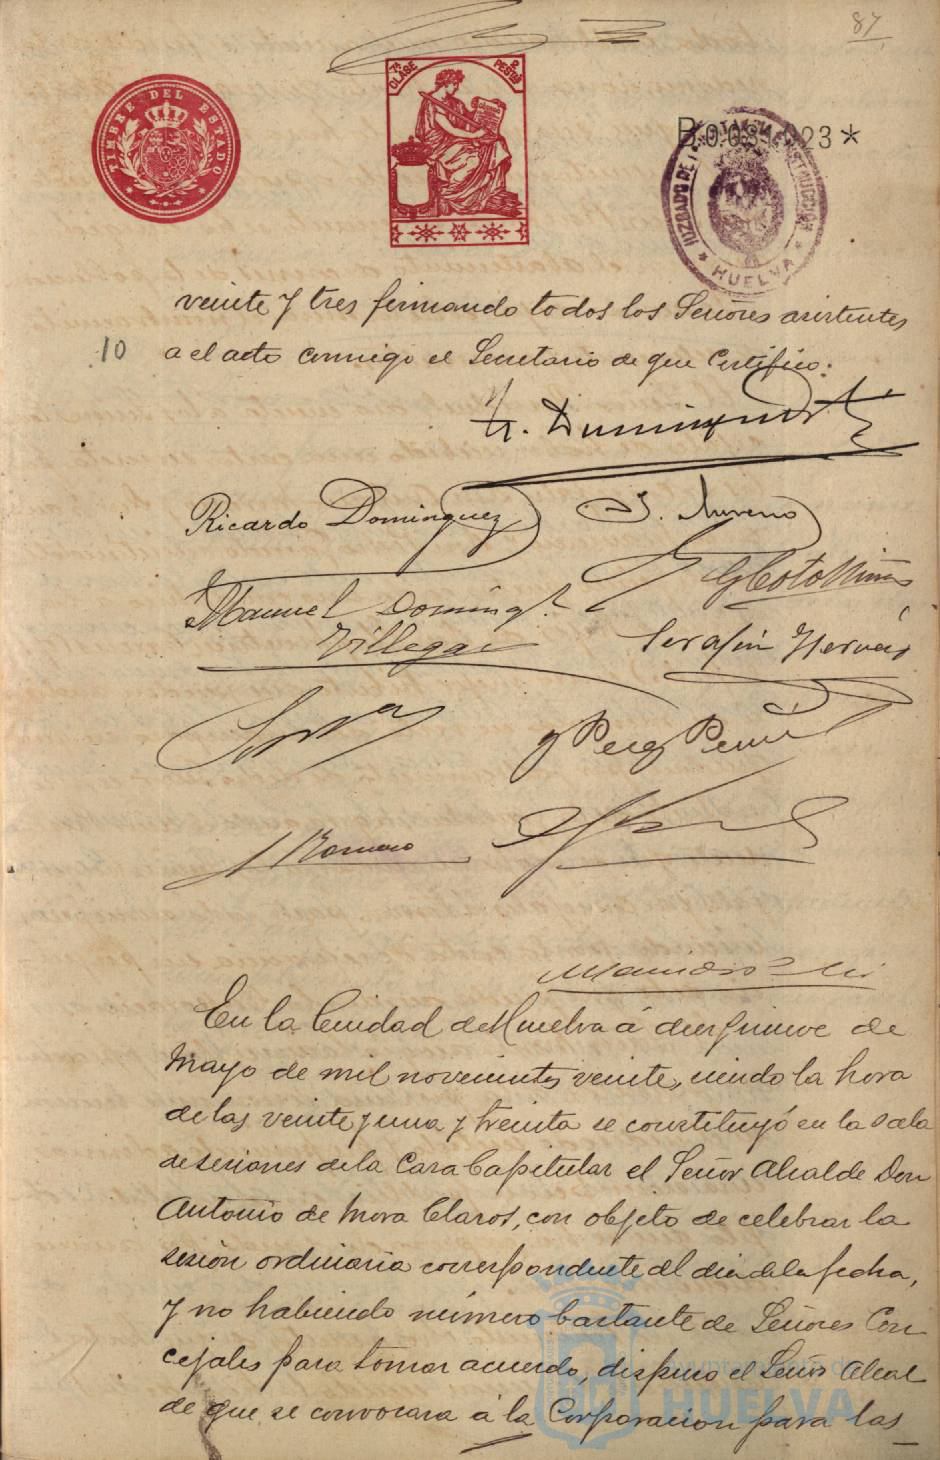 87
TIMBRE DEL ESTADO
7ª CLASE
PESTAS
JUZGADO DE INSTRUCCION
HUELVA
veinte y tres firmando todos los Señores asistentes
10
a el acto conmigo el Secretario de que Certifico:
Ricardo Dominguez
J. Moreno
Manuel Doming.
Villegas
Serafin Hervás
Perez
Romero
En la Ciudad de Huelva á diez y nueve de
Mayo de mil novecientos veinte, siendo la hora
de las veinte y una y treinta se constituyó en la sala
de sesiones de la Casa Capitular el Señor Alcalde Don
Antonio de Mora Claros, con objeto de celebrar la
sesión ordinaria correspondiente al dia de la fecha,
y no habiendo número bastante de Señores Con
cejales para tomar acuerdo, dispuso el Señor Alcal
de que se convocara á la Corporacion para las
Ayuntamiento de
HUELVA